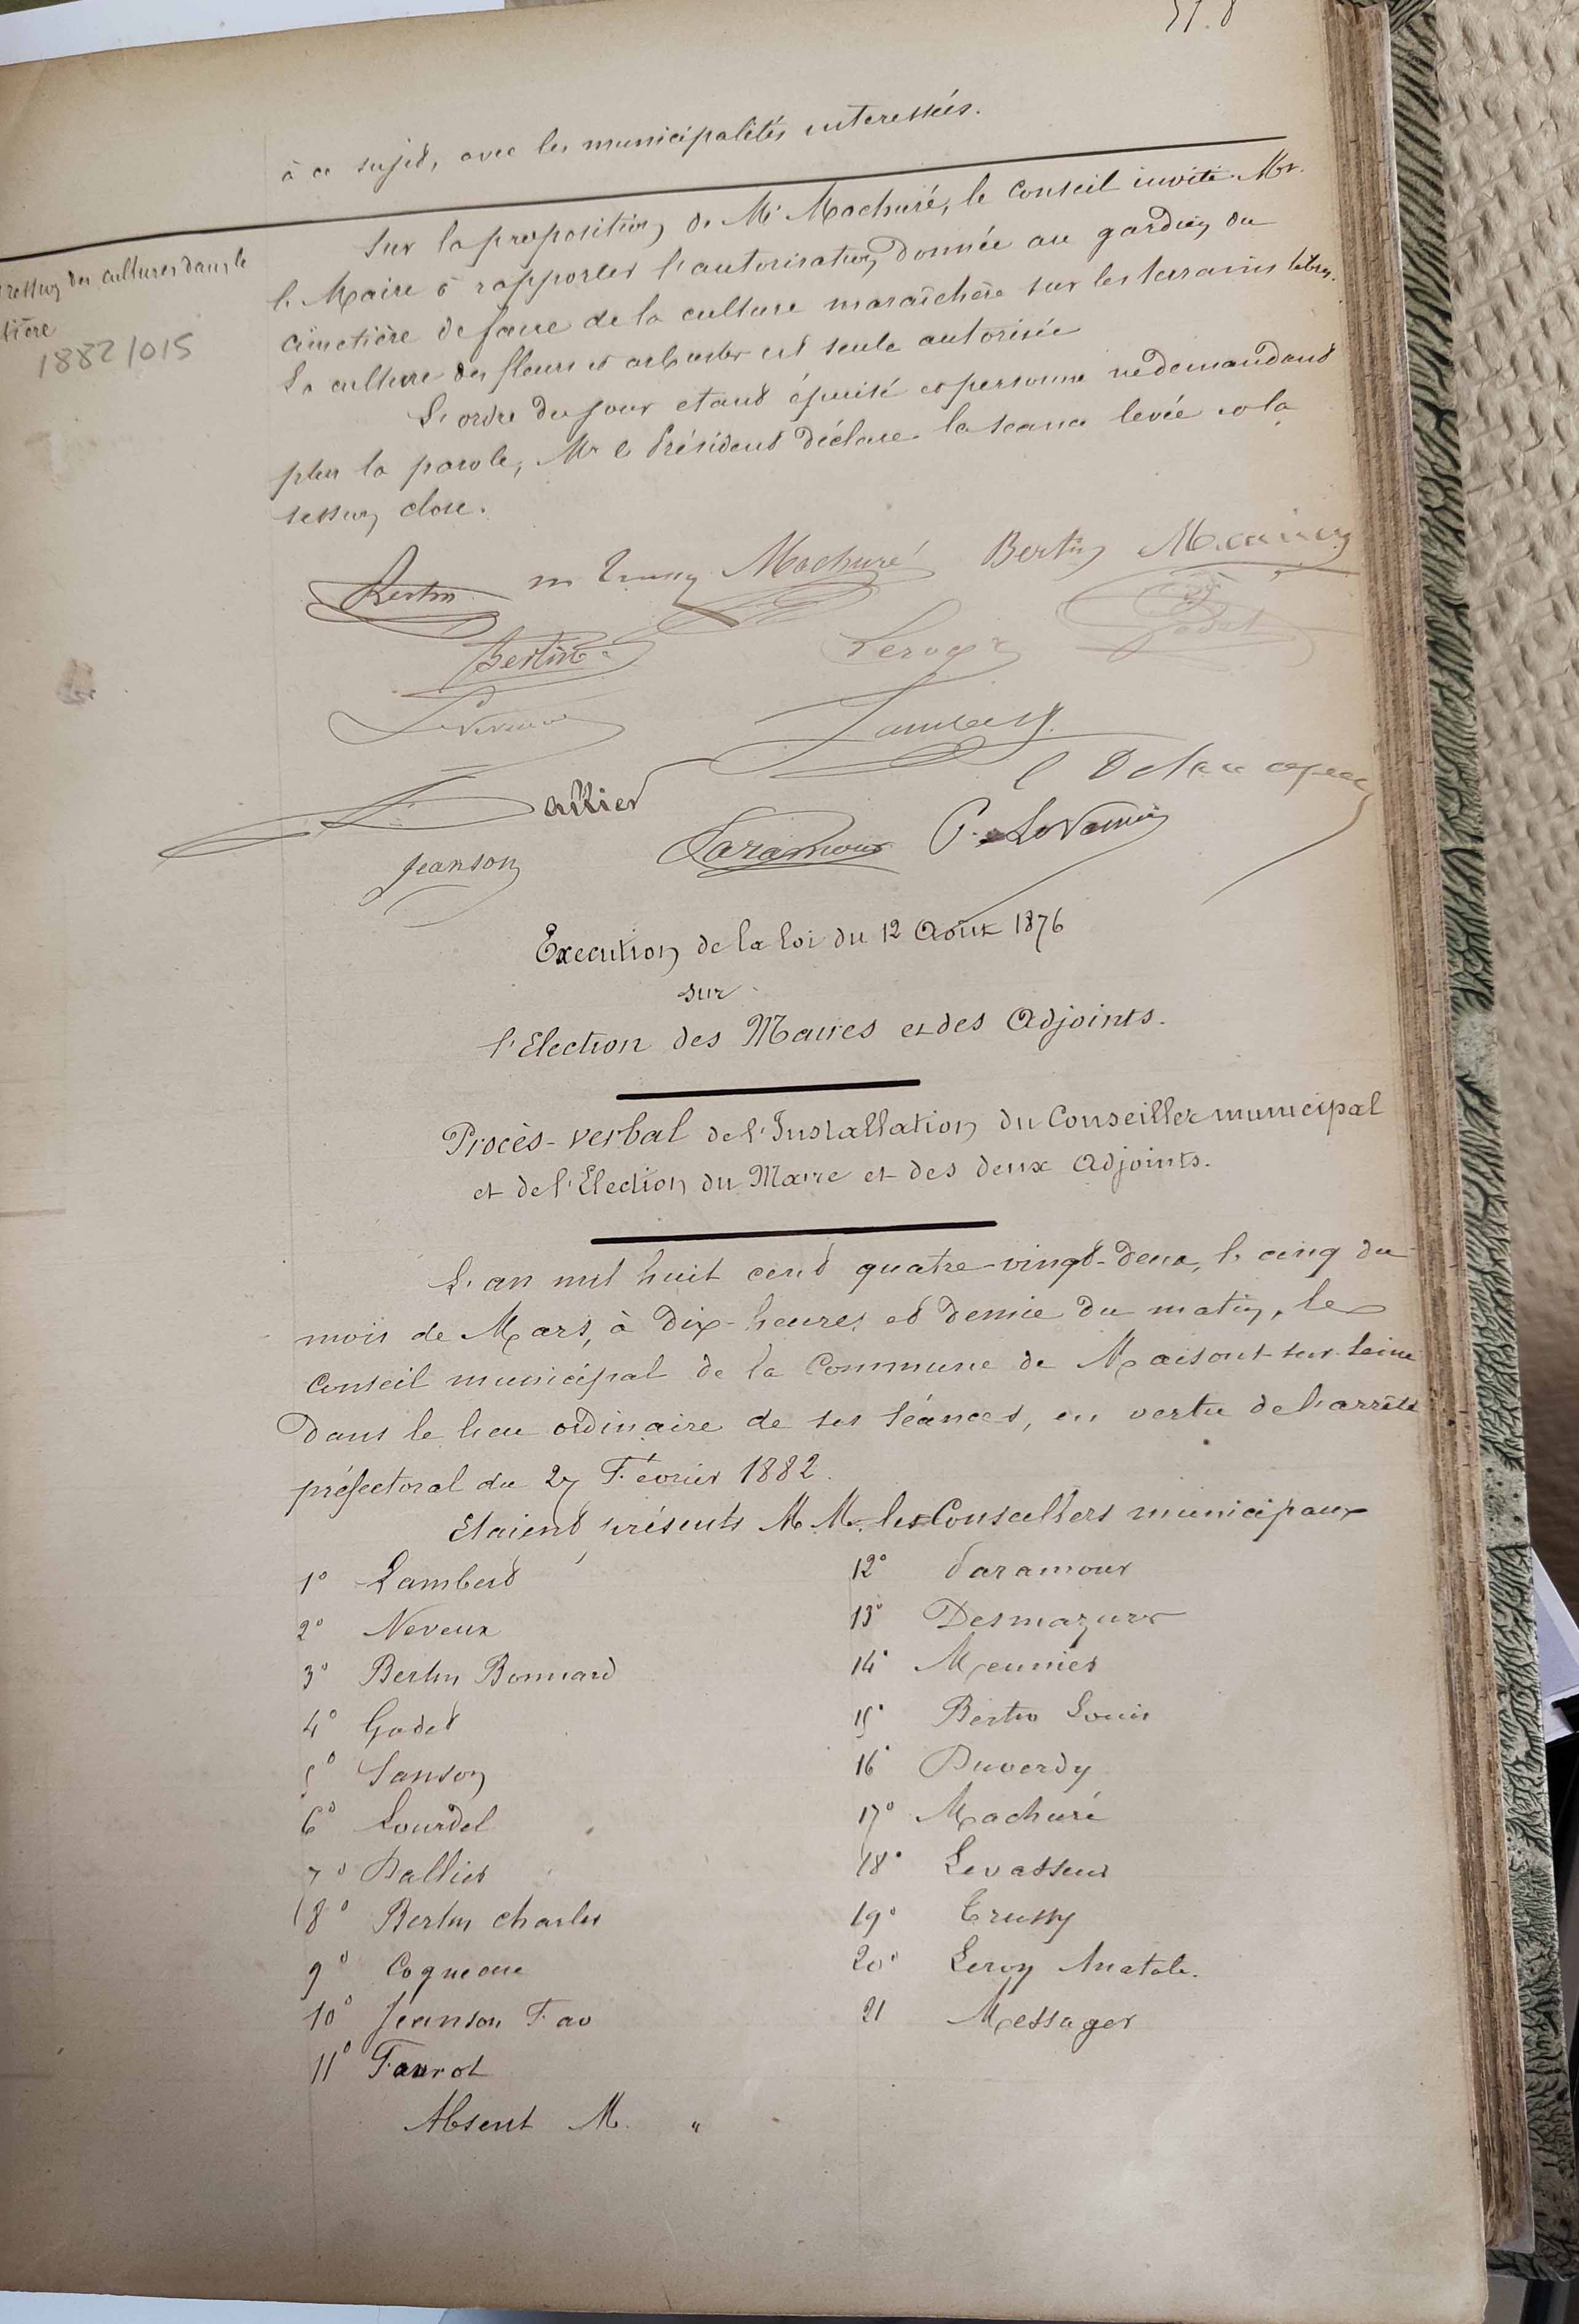 à ce sujet, avec les municipalités interessées.
Sur la proposition de Mr Machuré, le Conseil invite Mr.
le Maire à rapporter l'autorisation donnée au gardien du
cimetière de faire de la culture maraîchère sur les terrains libres.
La culture des fleurs et arbustes est seule autorisée
L'ordre du jour etant épuisé et personne ne demandant
plus la parole, Mr le Président déclare la séance levée et la
session close.
des cultures dans le
1882/015
Bertin Machuré Bertin
Bertin Leroy Godet
Lambert
Dallier
Jeanson Varamour
Execution de la Loi du 12 Août 1876
sur
l'Election des Maires et des Adjoints.
Procès-verbal de l'Installation du Conseiller municipal
et de l'Election du Maire et des deux Adjoints.
L'an mil huit cent quatre-vingt-deux, le cinq du
mois de Mars, à dix-heures et demie du matin, le
Conseil municipal de la Commune de Maisons-sur-Seine
Dans le lieu ordinaire de ses séances, en vertu de l'arrêté
préfectoral du 27 Février 1882.
Etaient présents M M. les Conseillers municipaux
1° Lambert
2° Neveux
3° Bertin Bonnard
4° Godet
5° Sanson
6° Lourdel
7° Dallier
8° Bertin Charles
9° Cogneau
10° Jeanson Fao
11° Favrot
Absent M. "
12° Varamour
13° Desmazures
14° Meunier
15° Bertin Louis
16° Duverdy
17° Machuré
18° Levasseur
19° Trussy
20° Leroy Anatole.
21 Messager